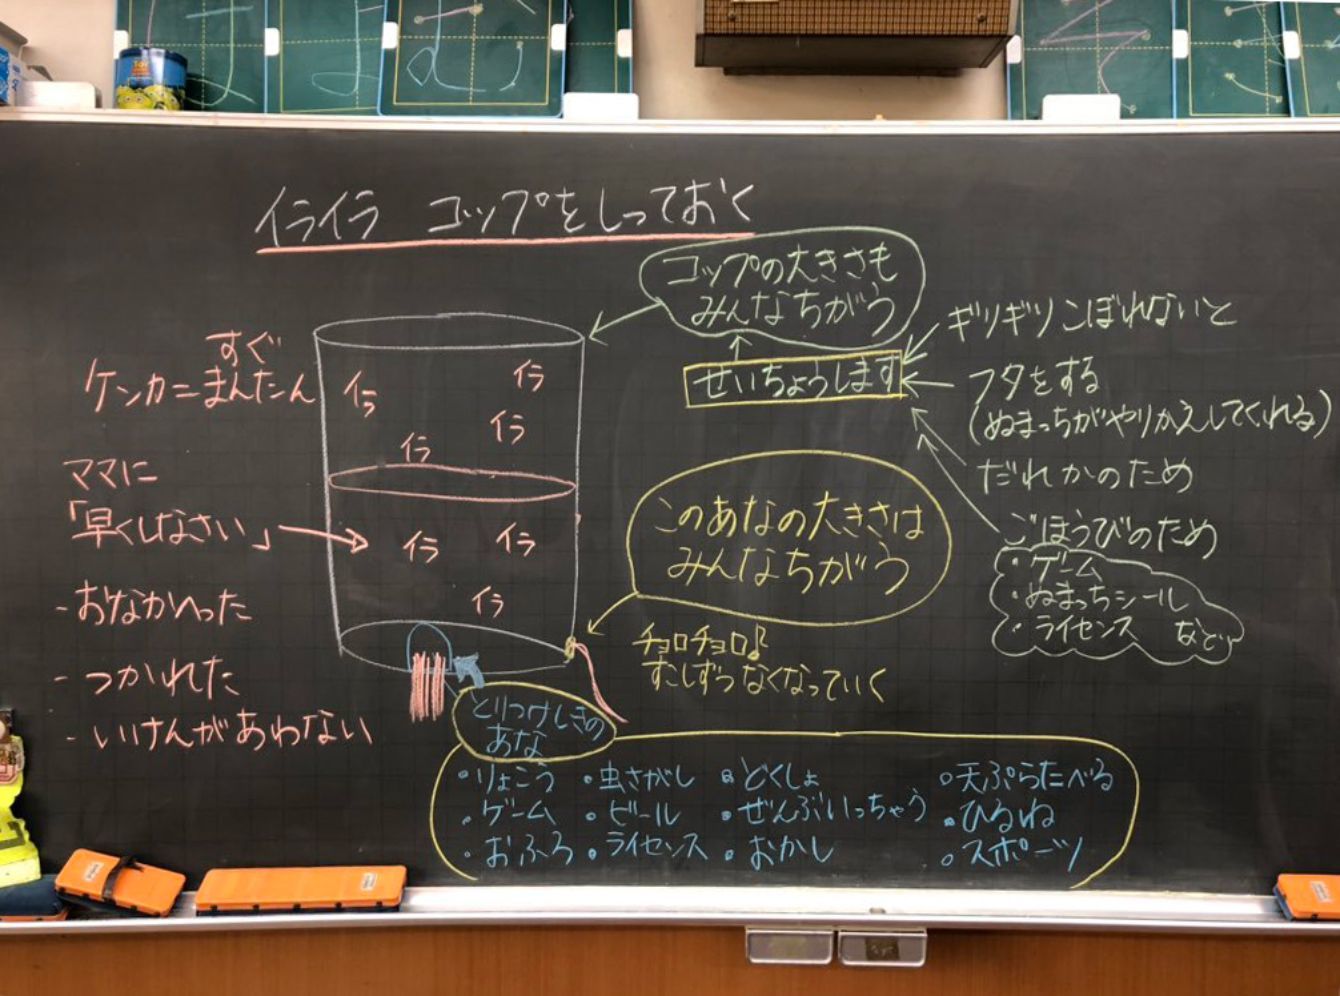 イライラ コップをしっておく
コップの大きさも
みんなちがう
せいちょうします
ギリギリこぼれないと
フタをする
(ぬまっちがやりかえしてくれる)
だれかのため
ごほうびのため
・ゲーム
・ぬまっちシール
・ライセンス など
すぐ
ケンカ=まんたん
ママに
「早くしなさい」
- おなかへった
- つかれた
- いけんがあわない
イラ
イラ
イラ
イラ
イラ
イラ
イラ
このあなの大きさは
みんなちがう
チョロチョロ♪
すこしずつなくなっていく
とりつけしきの
あな
・りょこう ・虫さがし ・どくしょ ・天ぷらたべる
・ゲーム ・ビール ・ぜんぶいっちゃう ・ひるね
・おふろ ・ライセンス ・おかし ・スポーツ